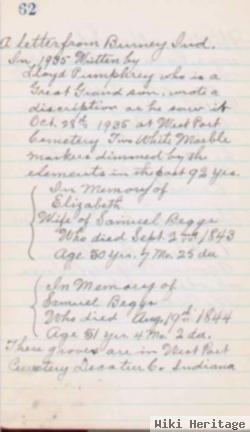 62
A letter from Burney Ind.
In 1935 Written by
Lloyd Pumphrey who is a
Great Grand son, wrote a
discription as he saw it
Oct. 28th 1935 at West Port
Cemetery Two White Marble
markers dimmed by the
elements in the past 92 yrs.
In Memory of
Elizabeth
Wife of Samuel Beggs
Who died Sept. 2nd 1843
Age 50 yrs. 7 Mo. 25 da
In Memory of
Samuel Beggs
Who died Aug. 19th 1844
Age 51 yr. 4 Mo. 2 da.
These graves are in West Port
Cemetery Decatur Co. Indiana
Wiki Heritage